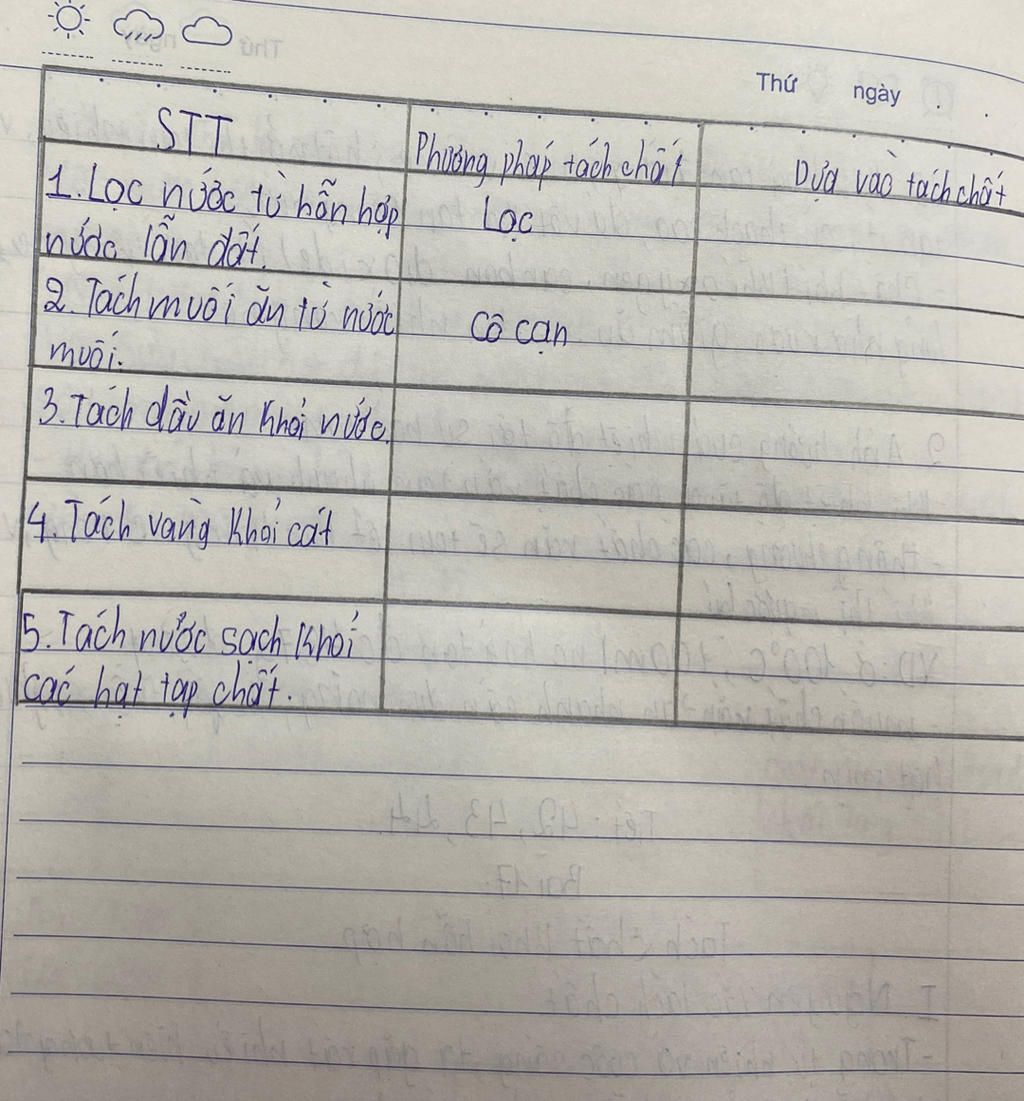 Thứ ngày
STT
Phương pháp tách chất
Dựa vào tách chất
1. Lọc nước từ hỗn hợp
nước lẫn đất.
Lọc
2. Tách muối ăn từ nước
muối.
Cô cạn
3. Tách dầu ăn khỏi nước.
4. Tách vàng khỏi cát
5. Tách nước sạch khỏi
các hạt tạp chất.